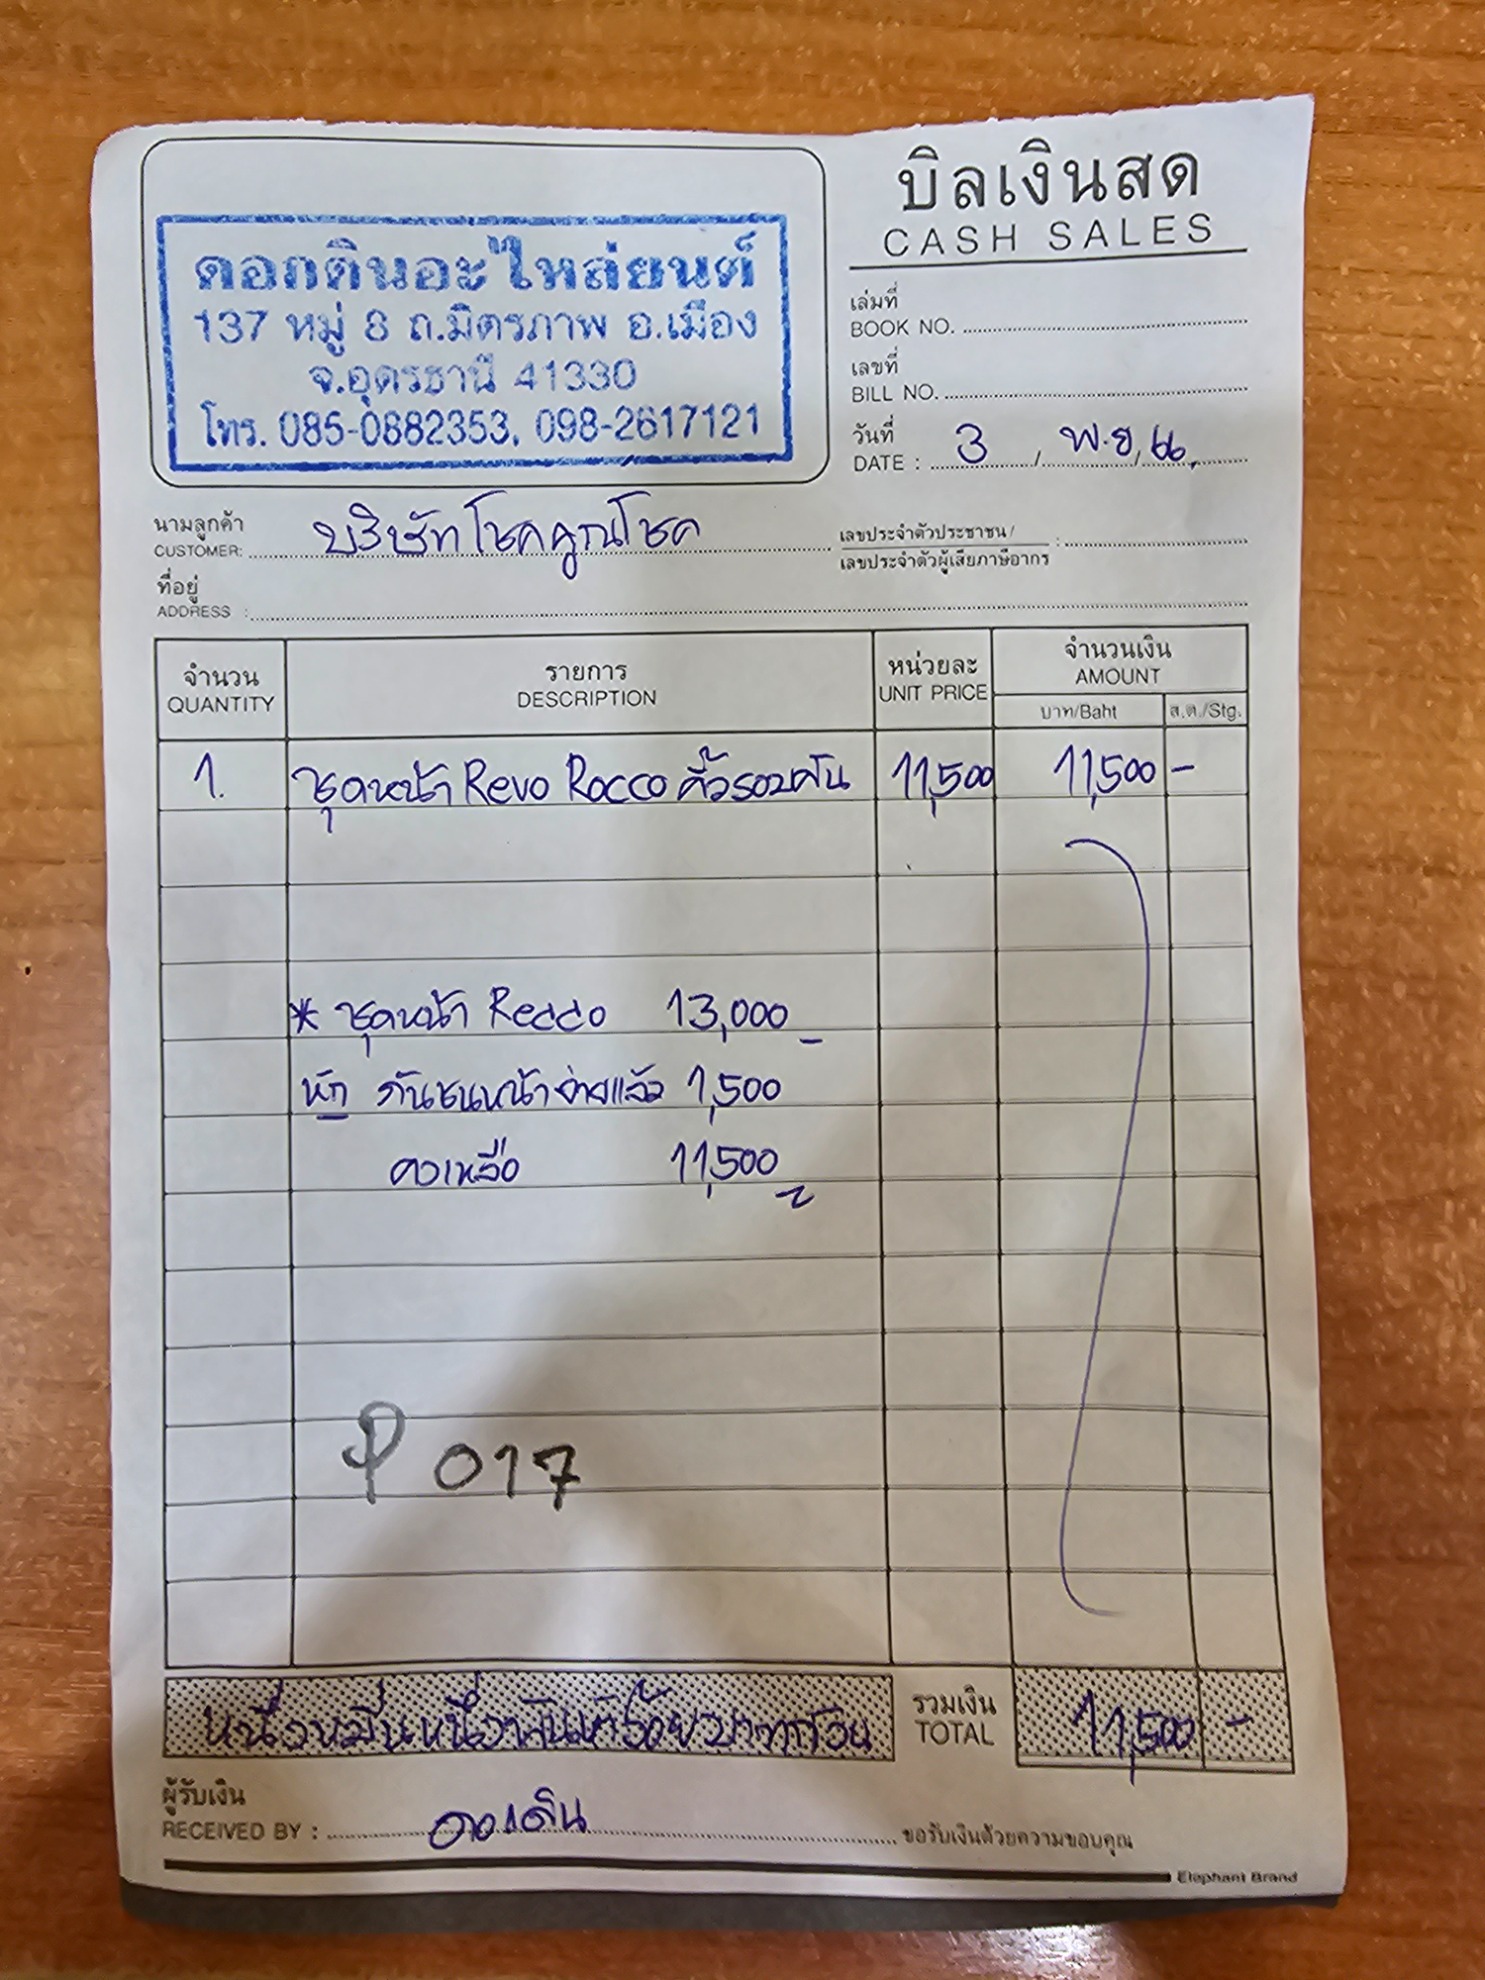 บิลเงินสด
CASH SALES
ดอกดินอะไหล่ยนต์
137 หมู่ 8 ถ.มิตรภาพ อ.เมือง
จ.อุดรธานี 41330
โทร. 085-0682353, 098-2617121
เล่มที่
BOOK NO.
เลขที่
BILL NO.
วันที่
DATE : 3 / พ.ย. / 66
นามลูกค้า
CUSTOMER: บริษัทโชคคูณโชค
เลขประจำตัวประชาชน /
เลขประจำตัวผู้เสียภาษีอากร :
ที่อยู่
ADDRESS :
จำนวน รายการ หน่วยละ จำนวนเงิน
QUANTITY DESCRIPTION UNIT PRICE AMOUNT
บาท/Baht ส.ต./Stg.
1. ชุดหน้า Revo Rocco คิ้วรอบคัน 11,500 11,500 -
* ชุดหน้า Rocco 13,000
หัก กันชนหน้าจ่ายแล้ว 1,500
คงเหลือ 11,500
P 017
หนึ่งหมื่นหนึ่งพันห้าร้อยบาทถ้วน
รวมเงิน
TOTAL 11,500 -
ผู้รับเงิน
RECEIVED BY : ดอกดิน
ขอรับเงินด้วยความขอบคุณ
Elephant Brand